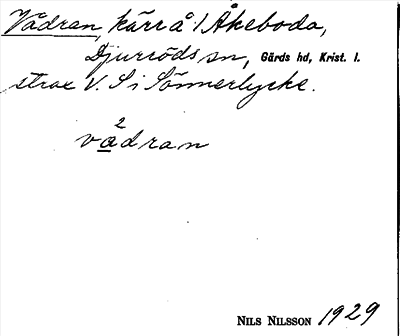 Vådran, kärr å 1 Åkeboda,
Djurröds sn, Gärds hd, Krist. l.
strax V. S i Sönnerlycke.
2
vådran
NILS NILSSON 1929